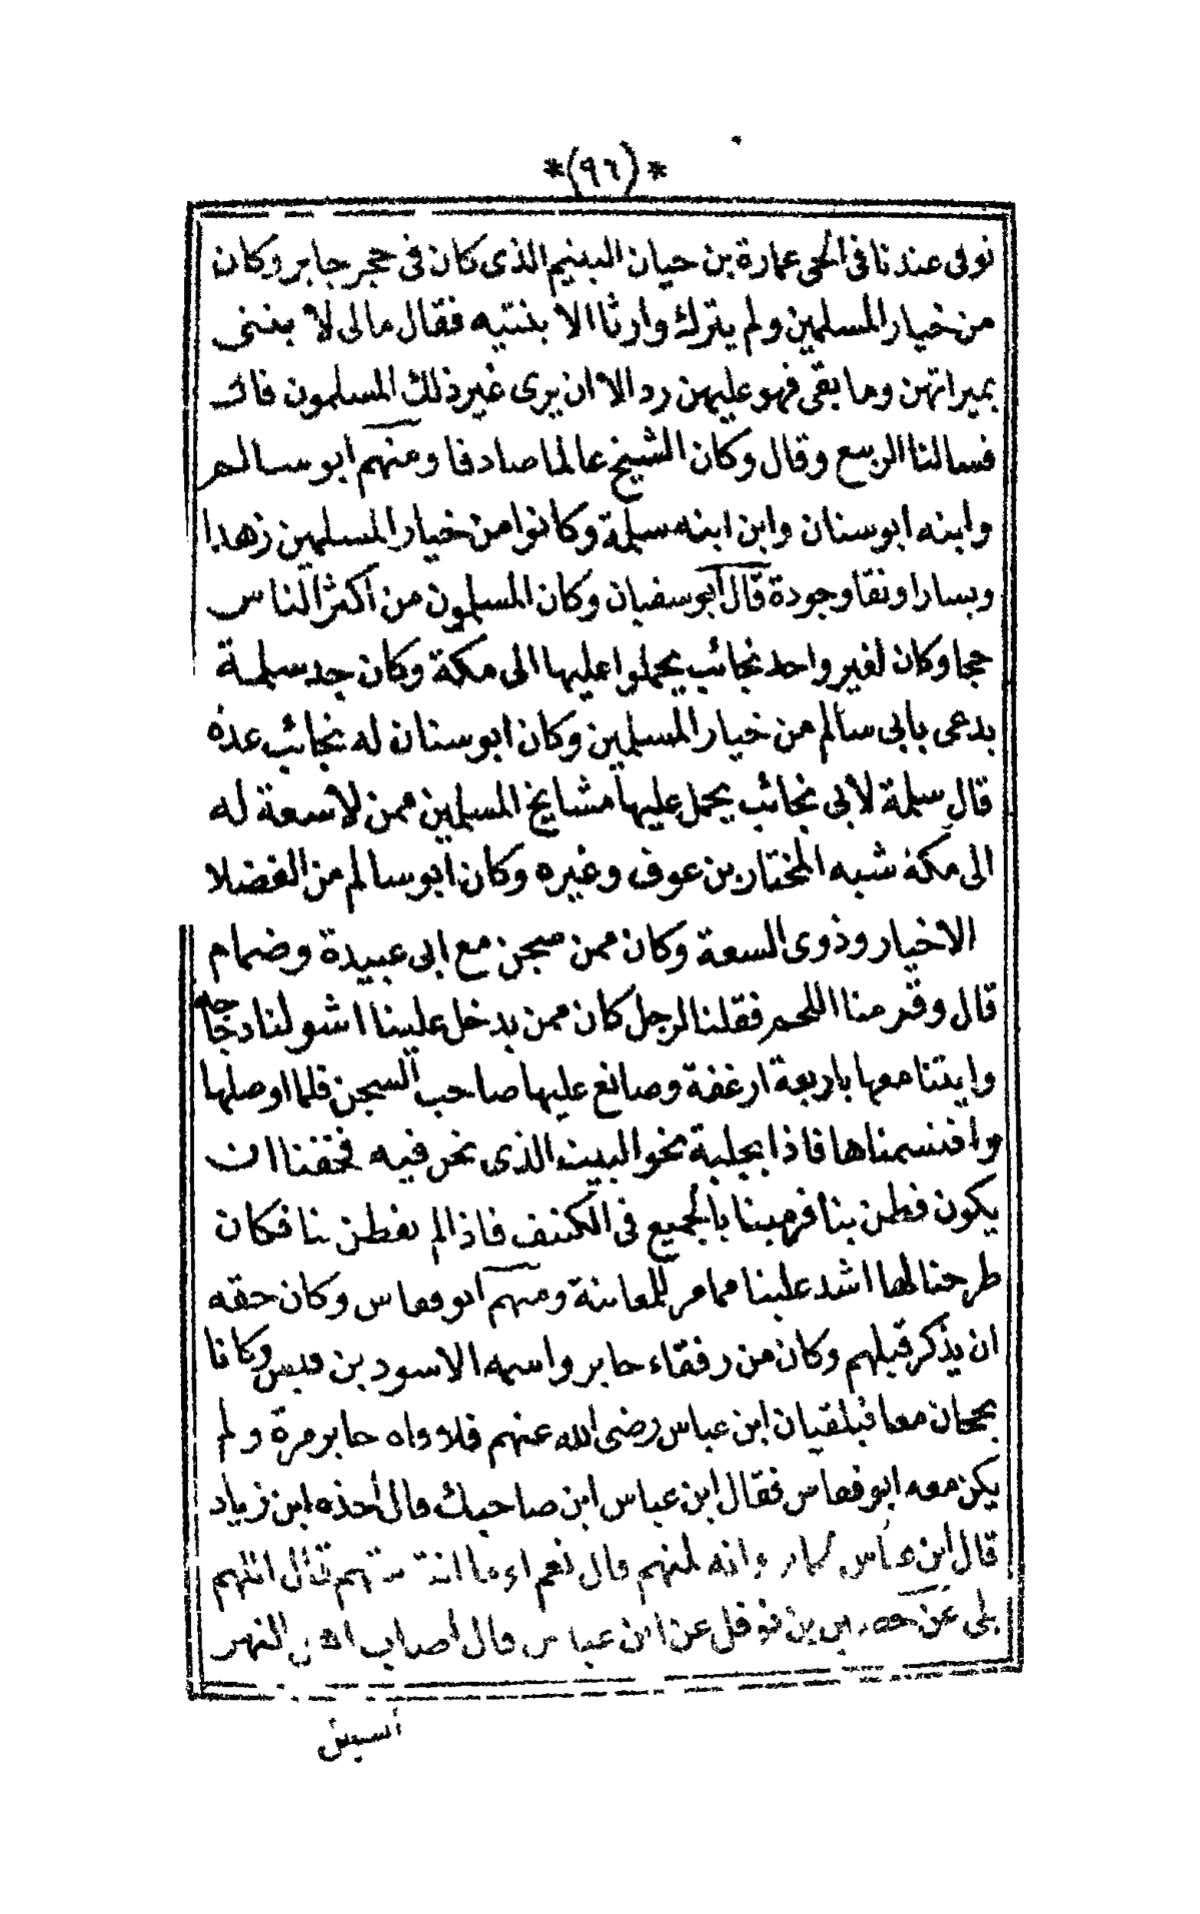 *(٩٦)*
توفى عندنا فى الحى عمارة بن حيان اليتيم الذى كان فى حجر جابر وكان
من خيار المسلمين ولم يترك وارثا الا بنتيه فقال مالى لا
بميراثهن وما بقى فهو عليهن رد الا ان يرى غير ذلك المسلمون قال
فسالنا الربيع وقال وكان الشيخ عالما صادقا ومنهم ابو سالم
وابنه ابو سنان وابن ابنه سلمة وكانوا من خيار المسلمين زهدا
ويسارا وتقا وجودة قال ابو سفيان وكان المسلمون من اكثر الناس
حجا وكان لغير واحد نجائب يحملوا عليها الى مكة وكان جد سلمة
يدعى بابى سالم من خيار المسلمين وكان ابو سنان له نجائب عدة
قال سلمة لأبى نجائب يحمل عليها مشايخ المسلمين ممن لا سعة له
الى مكة شبه المختار بن عوف وغيره وكان ابو سالم من الفضلا
الاخيار وذوى السعة وكان ممن سجن مع ابى عبيدة وضمام
قال وقرمنا اللحم فقلنا لرجل كان ممن يدخل علينا اشو لنا دجاجه
وايتنا معها باربعة ارغفة وصانع عليها صاحب السجن فلما اوصلها
واقتسمناها فاذا بجلبة نحو البيت الذى نحن فيه فخفنا ان
يكون فطن بنا فرمينا بالجميع فى الكنيف فاذا لم يفطن بنا فكان
طرحنا لها اشد علينا مما مر للمعاينة ومنهم ابو فقاس وكان حقه
ان يذكر قبلهم وكان من رفقاء جابر واسمه الاسود بن قيس وكانا
يحجان معا فيلقيان ابن عباس رضى الله عنهم فلاقاه جابر مرة ولم
يكن معه ابو فقاس فقال ابن عباس اين صاحبك قال اخذه ابن زياد
قال ابن عباس وانه لمتهم قال نعم او ما انت متهم قال اللهم
بلى عن حصين بن نوفل عن ابن عباس قال اصاب اهل النهر
السبيل